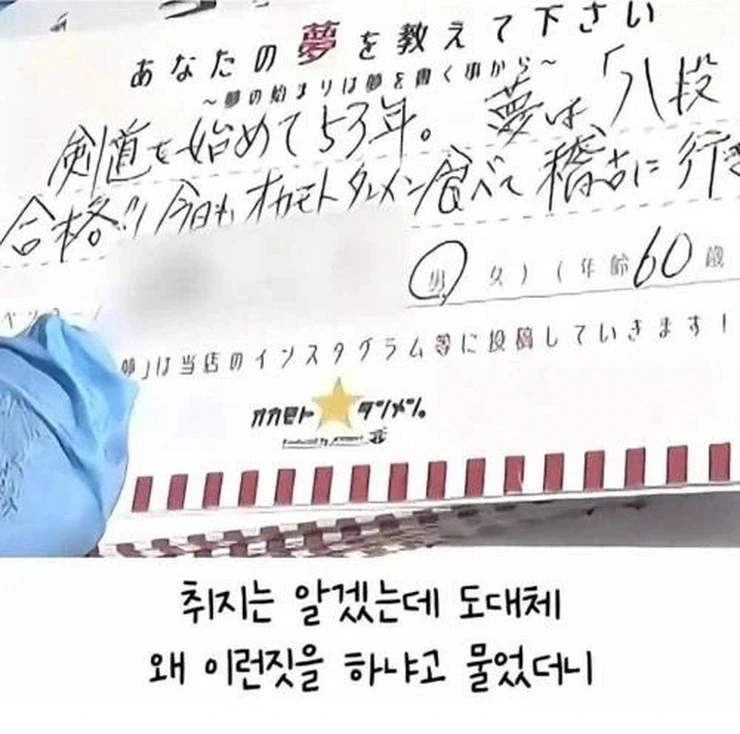 あなたの夢を教えて下さい
〜夢の始まりは夢を書く事から〜
剣道を始めて53年。夢は、「八段
合格!!今日も、オカモトタンメン食べて稽古に行き
男 女)(年齢60歳
夢」は当店のインスタグラム等に投稿していきます!
オカモト★タンメン。
Produced by
취지는 알겠는데 도대체
왜 이런짓을 하냐고 물었더니